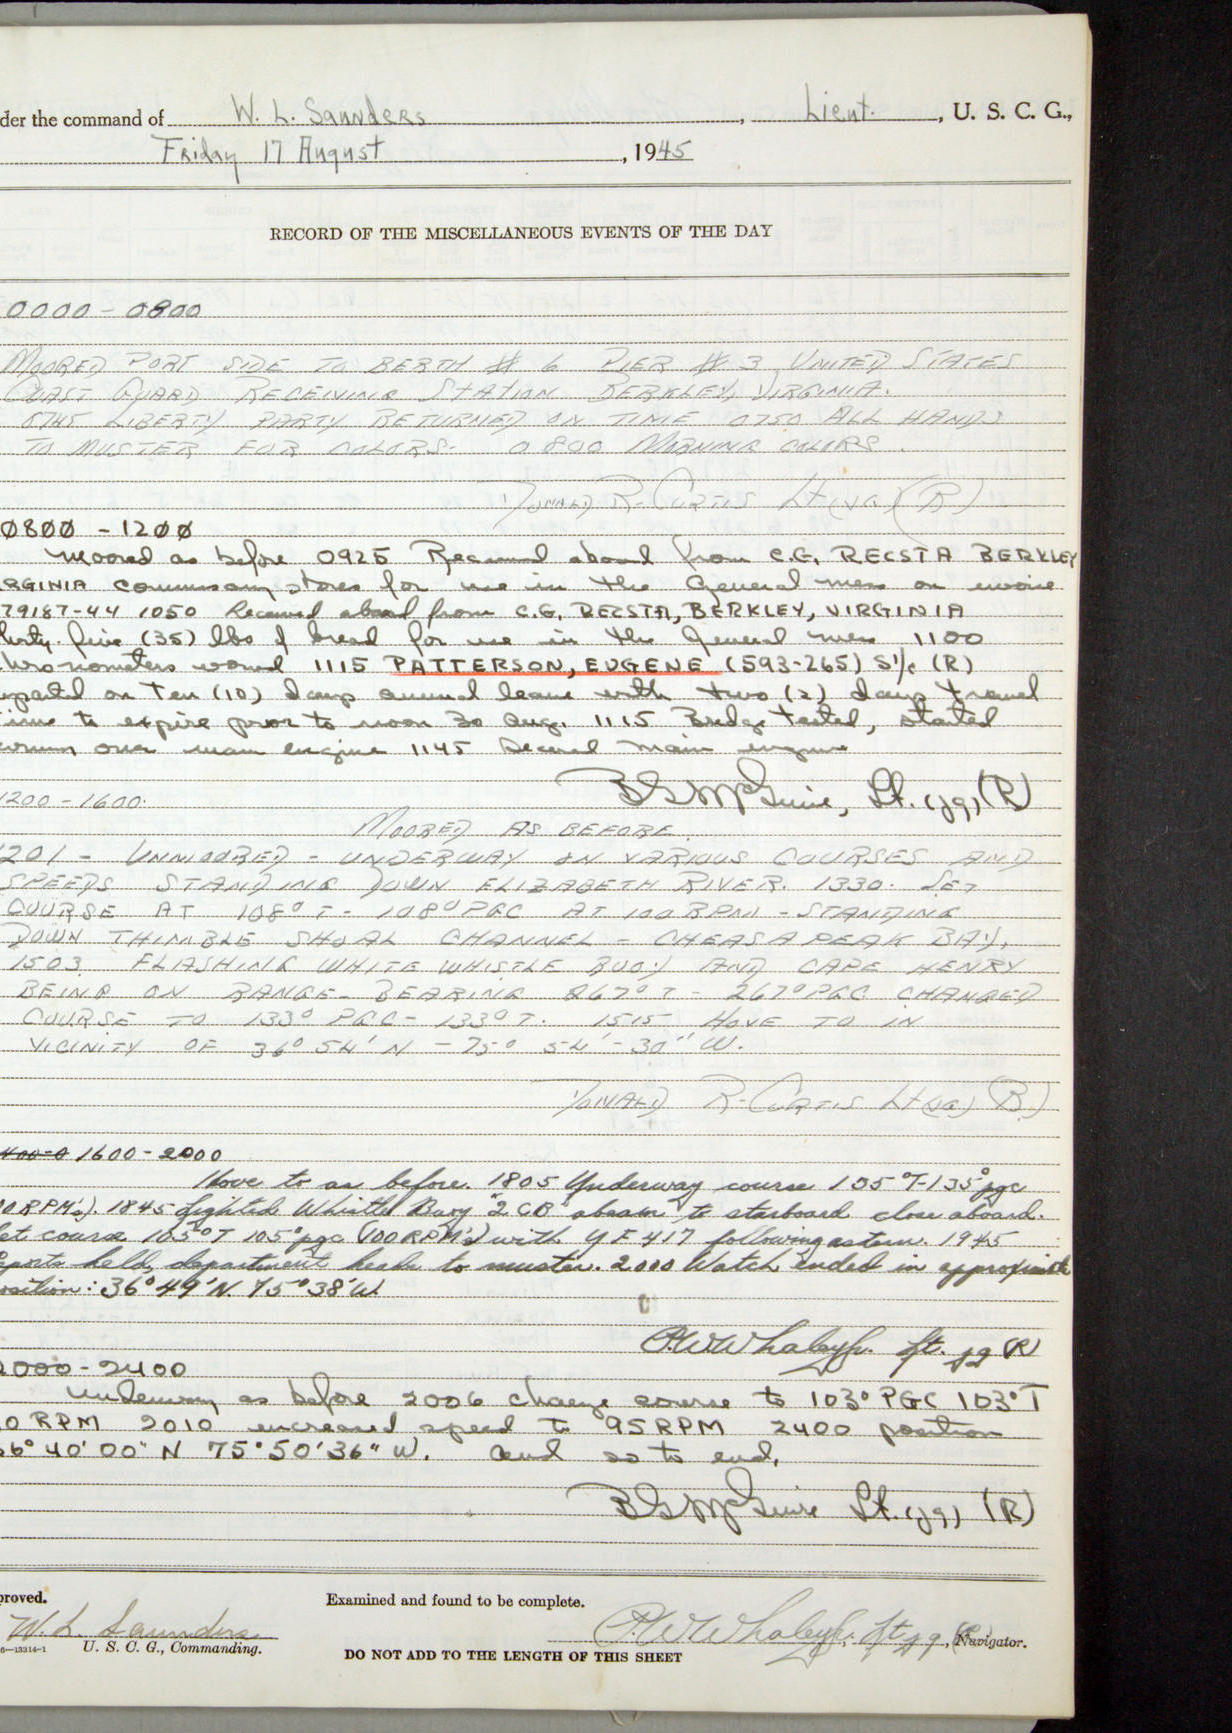 der the command of W. L. Saunders, Lieut., U. S. C. G.,
Friday 17 August, 1945
RECORD OF THE MISCELLANEOUS EVENTS OF THE DAY
0000 - 0800
MOORED PORT SIDE TO BERTH # 6 PIER # 3 UNITED STATES
COAST GUARD RECEIVING STATION BERKLEY, VIRGINIA.
0745 LIBERTY PARTY RETURNED ON TIME 0750 ALL HANDS
TO MUSTER FOR COLORS. 0800 MORNING COLORS.
DONALD R. CURTIS Lt (JG) (R)
0800 - 1200
Moored as before 0925 Received aboard from C.G. RECSTA BERKLEY
RGINIA commissary stores for use in the General mess on invoice
79187-44 1050 Received aboard from C.G. RECSTA, BERKLEY, VIRGINIA
hirty five (35) lbs of bread for use in the General mess 1100
hronometers wound 1115 PATTERSON, EUGENE (593-265) S1/c (R)
eparted on Ten (10) days annual leave with two (2) days travel
ime to expire prior to noon 30 Aug. 1115 Bridge tested, started
over main engine 1145 Secured main engine
B G McGuire, Lt. (jg) (R)
1200 - 1600.
MOORED AS BEFORE.
1201 - UNMOORED - UNDERWAY ON VARIOUS COURSES AND
SPEEDS STANDING DOWN ELIZABETH RIVER. 1330. SET
COURSE AT 108° T - 108° PGC AT 100 RPM - STANDING
DOWN THIMBLE SHOAL CHANNEL - CHEASAPEAK BAY.
1503 FLASHING WHITE WHISTLE BUOY AND CAPE HENRY
BEING ON RANGE - BEARING 267° T - 267° PGC CHANGED
COURSE TO 133° PGC - 133° T. 1515 HOVE TO IN
VICINITY OF 36° 54' N - 75° 54' - 30" W.
DONALD R. CURTIS Lt (JG) (R)
1600 - 2000
Hove to as before. 1805 Underway course 135°T-135° pgc
0 RPM's). 1845 sighted Whistle Buoy "2CB" abeam to starboard close aboard.
et course 105°T 105° pgc (100 RPM's) with YF 417 following astern. 1945
eports held, department heads to muster. 2000 Watch ended in approximate
osition: 36° 49' N. 75° 38' W.
P.W. Whaley Jr. Lt. jg (R)
2000 - 2400
Underway as before 2006 change course to 103° PGC 103° T
0 RPM 2010 increased speed to 95 RPM 2400 position
36° 40' 00" N 75° 50' 36" W. And so to end.
B G McGuire Lt. (jg) (R)
proved.
W. L. Saunders
U. S. C. G., Commanding.
6—13314-1
Examined and found to be complete.
P.W. Whaley Jr. Lt jg (R), Navigator.
DO NOT ADD TO THE LENGTH OF THIS SHEET